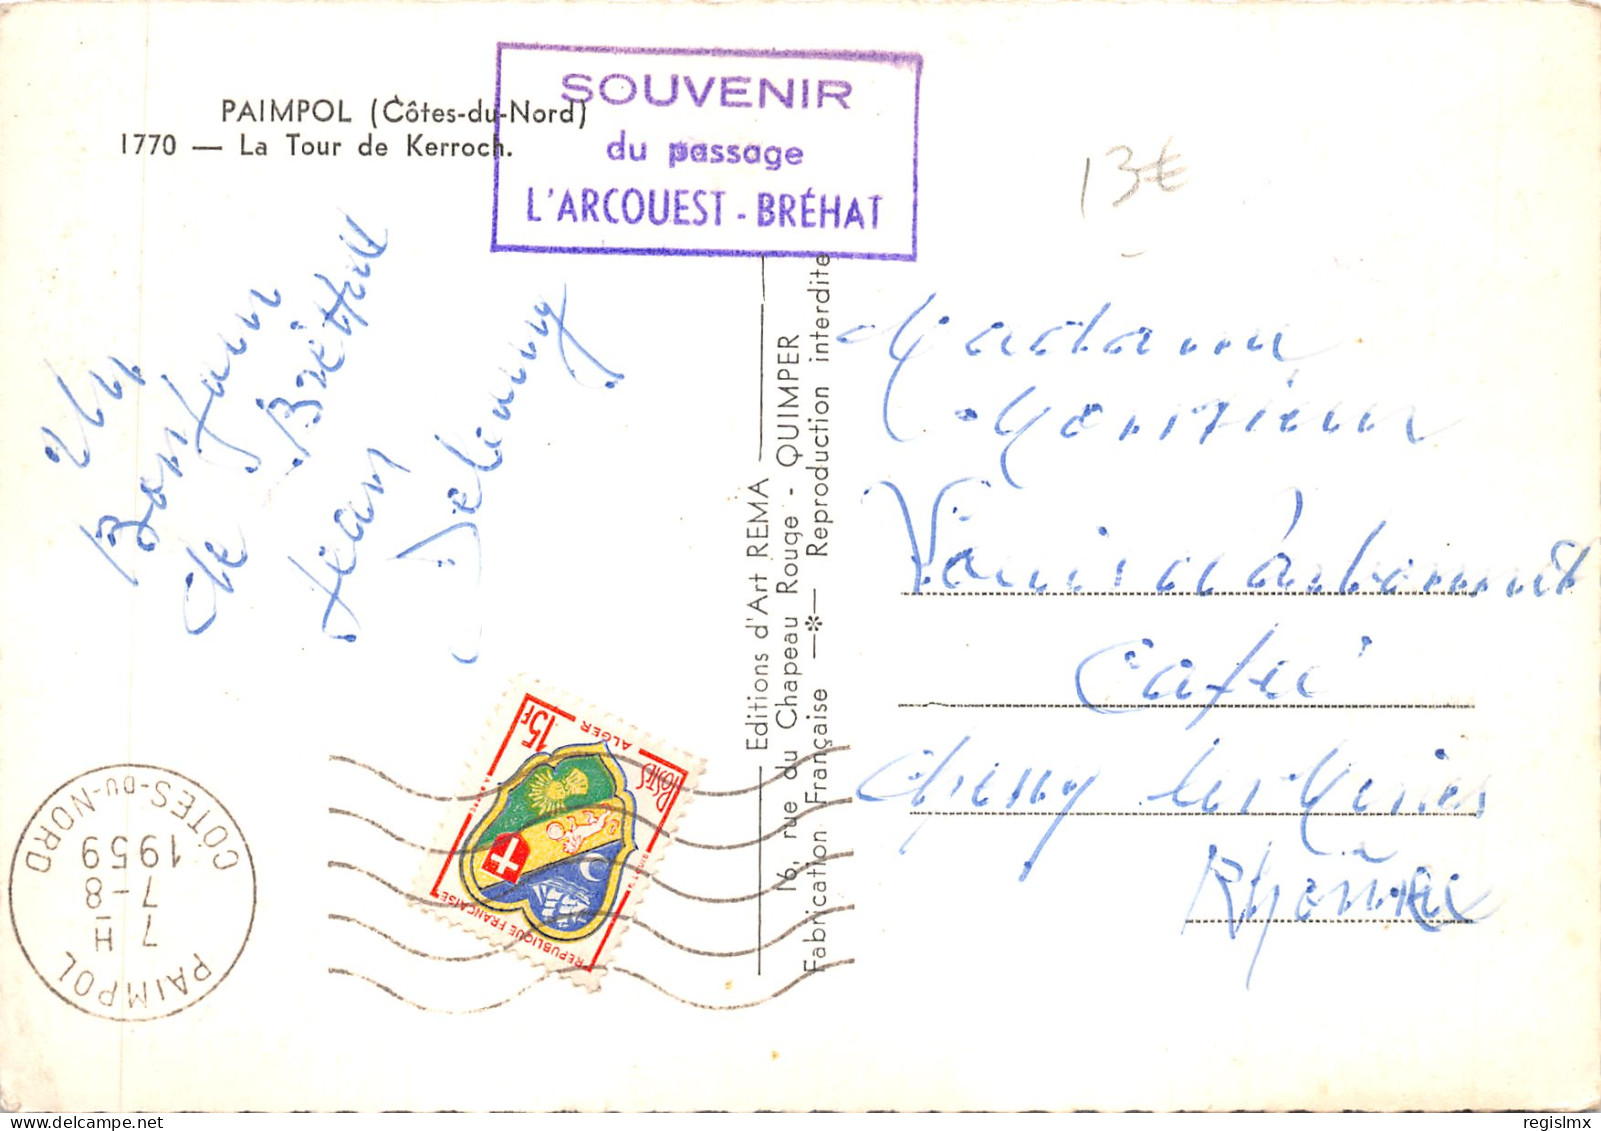 PAIMPOL (Côtes-du-Nord)
1770 — La Tour de Kerroch.
SOUVENIR
du passage
L'ARCOUEST - BRÉHAT
13€
Un
Bonjour
de Bréhat
Jean
Delaunay
Editions d'Art REMA
16, rue du Chapeau Rouge - QUIMPER
Fabrication Française —*— Reproduction interdite
Madame
Monsieur
Café
les Mines
Rhône
15F
POSTES
ALGER
REPUBLIQUE FRANÇAISE
PAIMPOL
7 H
7-8
1959
CÔTES-DU-NORD
regislmx